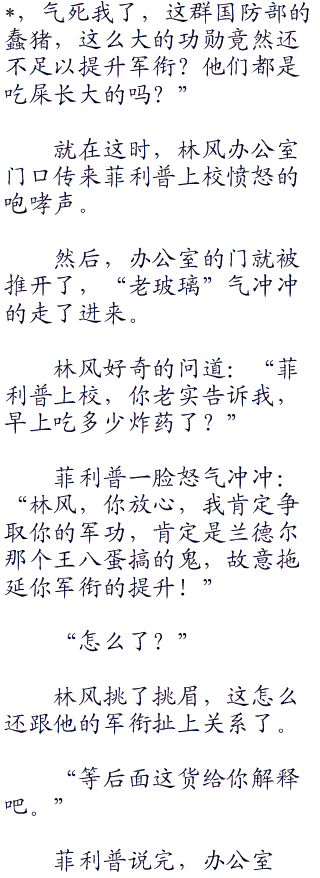 *，气死我了，这群国防部的
蠢猪，这么大的功勋竟然还
不足以提升军衔？他们都是
吃屎长大的吗？”
就在这时，林风办公室
门口传来菲利普上校愤怒的
咆哮声。
然后，办公室的门就被
推开了，“老玻璃”气冲冲
的走了进来。
林风好奇的问道：“菲
利普上校，你老实告诉我，
早上吃多少炸药了？”
菲利普一脸怒气冲冲：
“林风，你放心，我肯定争
取你的军功，肯定是兰德尔
那个王八蛋搞的鬼，故意拖
延你军衔的提升！”
“怎么了？”
林风挑了挑眉，这怎么
还跟他的军衔扯上关系了。
“等后面这货给你解释
吧。”
菲利普说完，办公室